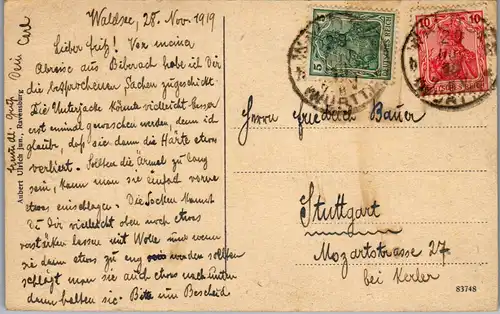 Waldsee, 28. Nov. 1919
Lieber Fritz! Vor meiner
Abreise aus Biberach habe ich Dir
die besprochenen Sachen zugeschickt.
Die Unterjacke könnte vielleicht besser
erst einmal gewaschen werden, denn ich
glaube, daß sie dann die Härte etwas
verliert. Sollten die Ärmel zu lang
sein, kann man sie einfach vorne
etwas einschlagen. Die Socken kannst
Du Dir vielleicht oben noch etwas
verstärken lassen mit Wolle und wenn
sie dann etwas zu eng werden sollten
schlägt man sie auch etwas nach unten
dann halten sie. Bitte um Bescheid
Dein Carl
Aubert Ulrich jun., Ravensburg
5
DEUTSCHES REICH
10
DEUTSCHES REICH
Herrn Friedrich Bauer
Stuttgart
Mozartstrasse 27
bei Kerler
83748